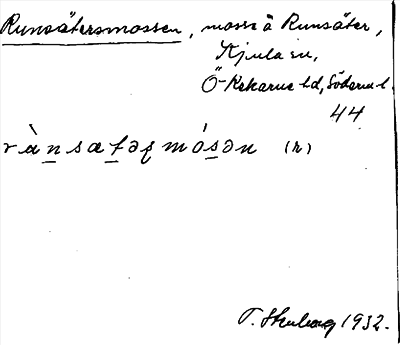 Runsätersmossen, mosse å Runsäter,
Kjula sn,
Ö Rekarne hd, Söderm l.
44
rànsætəʂmósən (n)
T. Stenberg 1932.